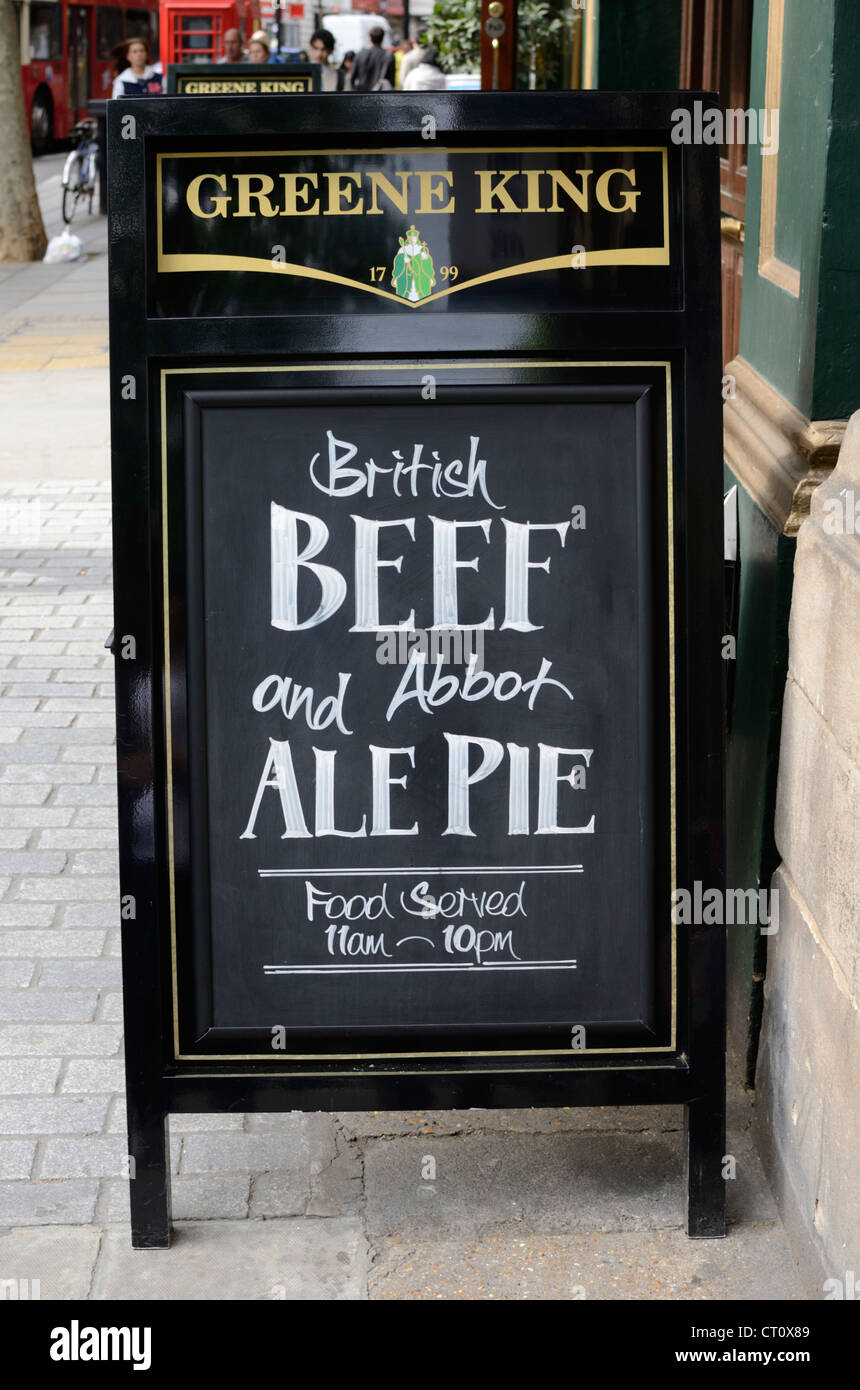 GREENE KING
GREENE KING
17 99
British
BEEF
and Abbot
ALE PIE
Food Served
11am - 10pm
alamy
Image ID: CT0X89
www.alamy.com